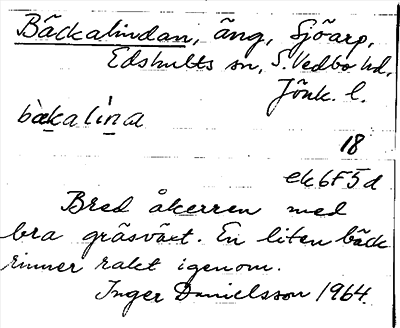 Bäckalindan, äng, Sjöarp,
Edshults sn, S. Vedbo hd,
Jönk. l.
bàkalína
18
ek 6F5d
Bred åkerren med
bra gräsväxt. En liten bäck
rinner rakt igenom.
Inger Danielsson 1964.